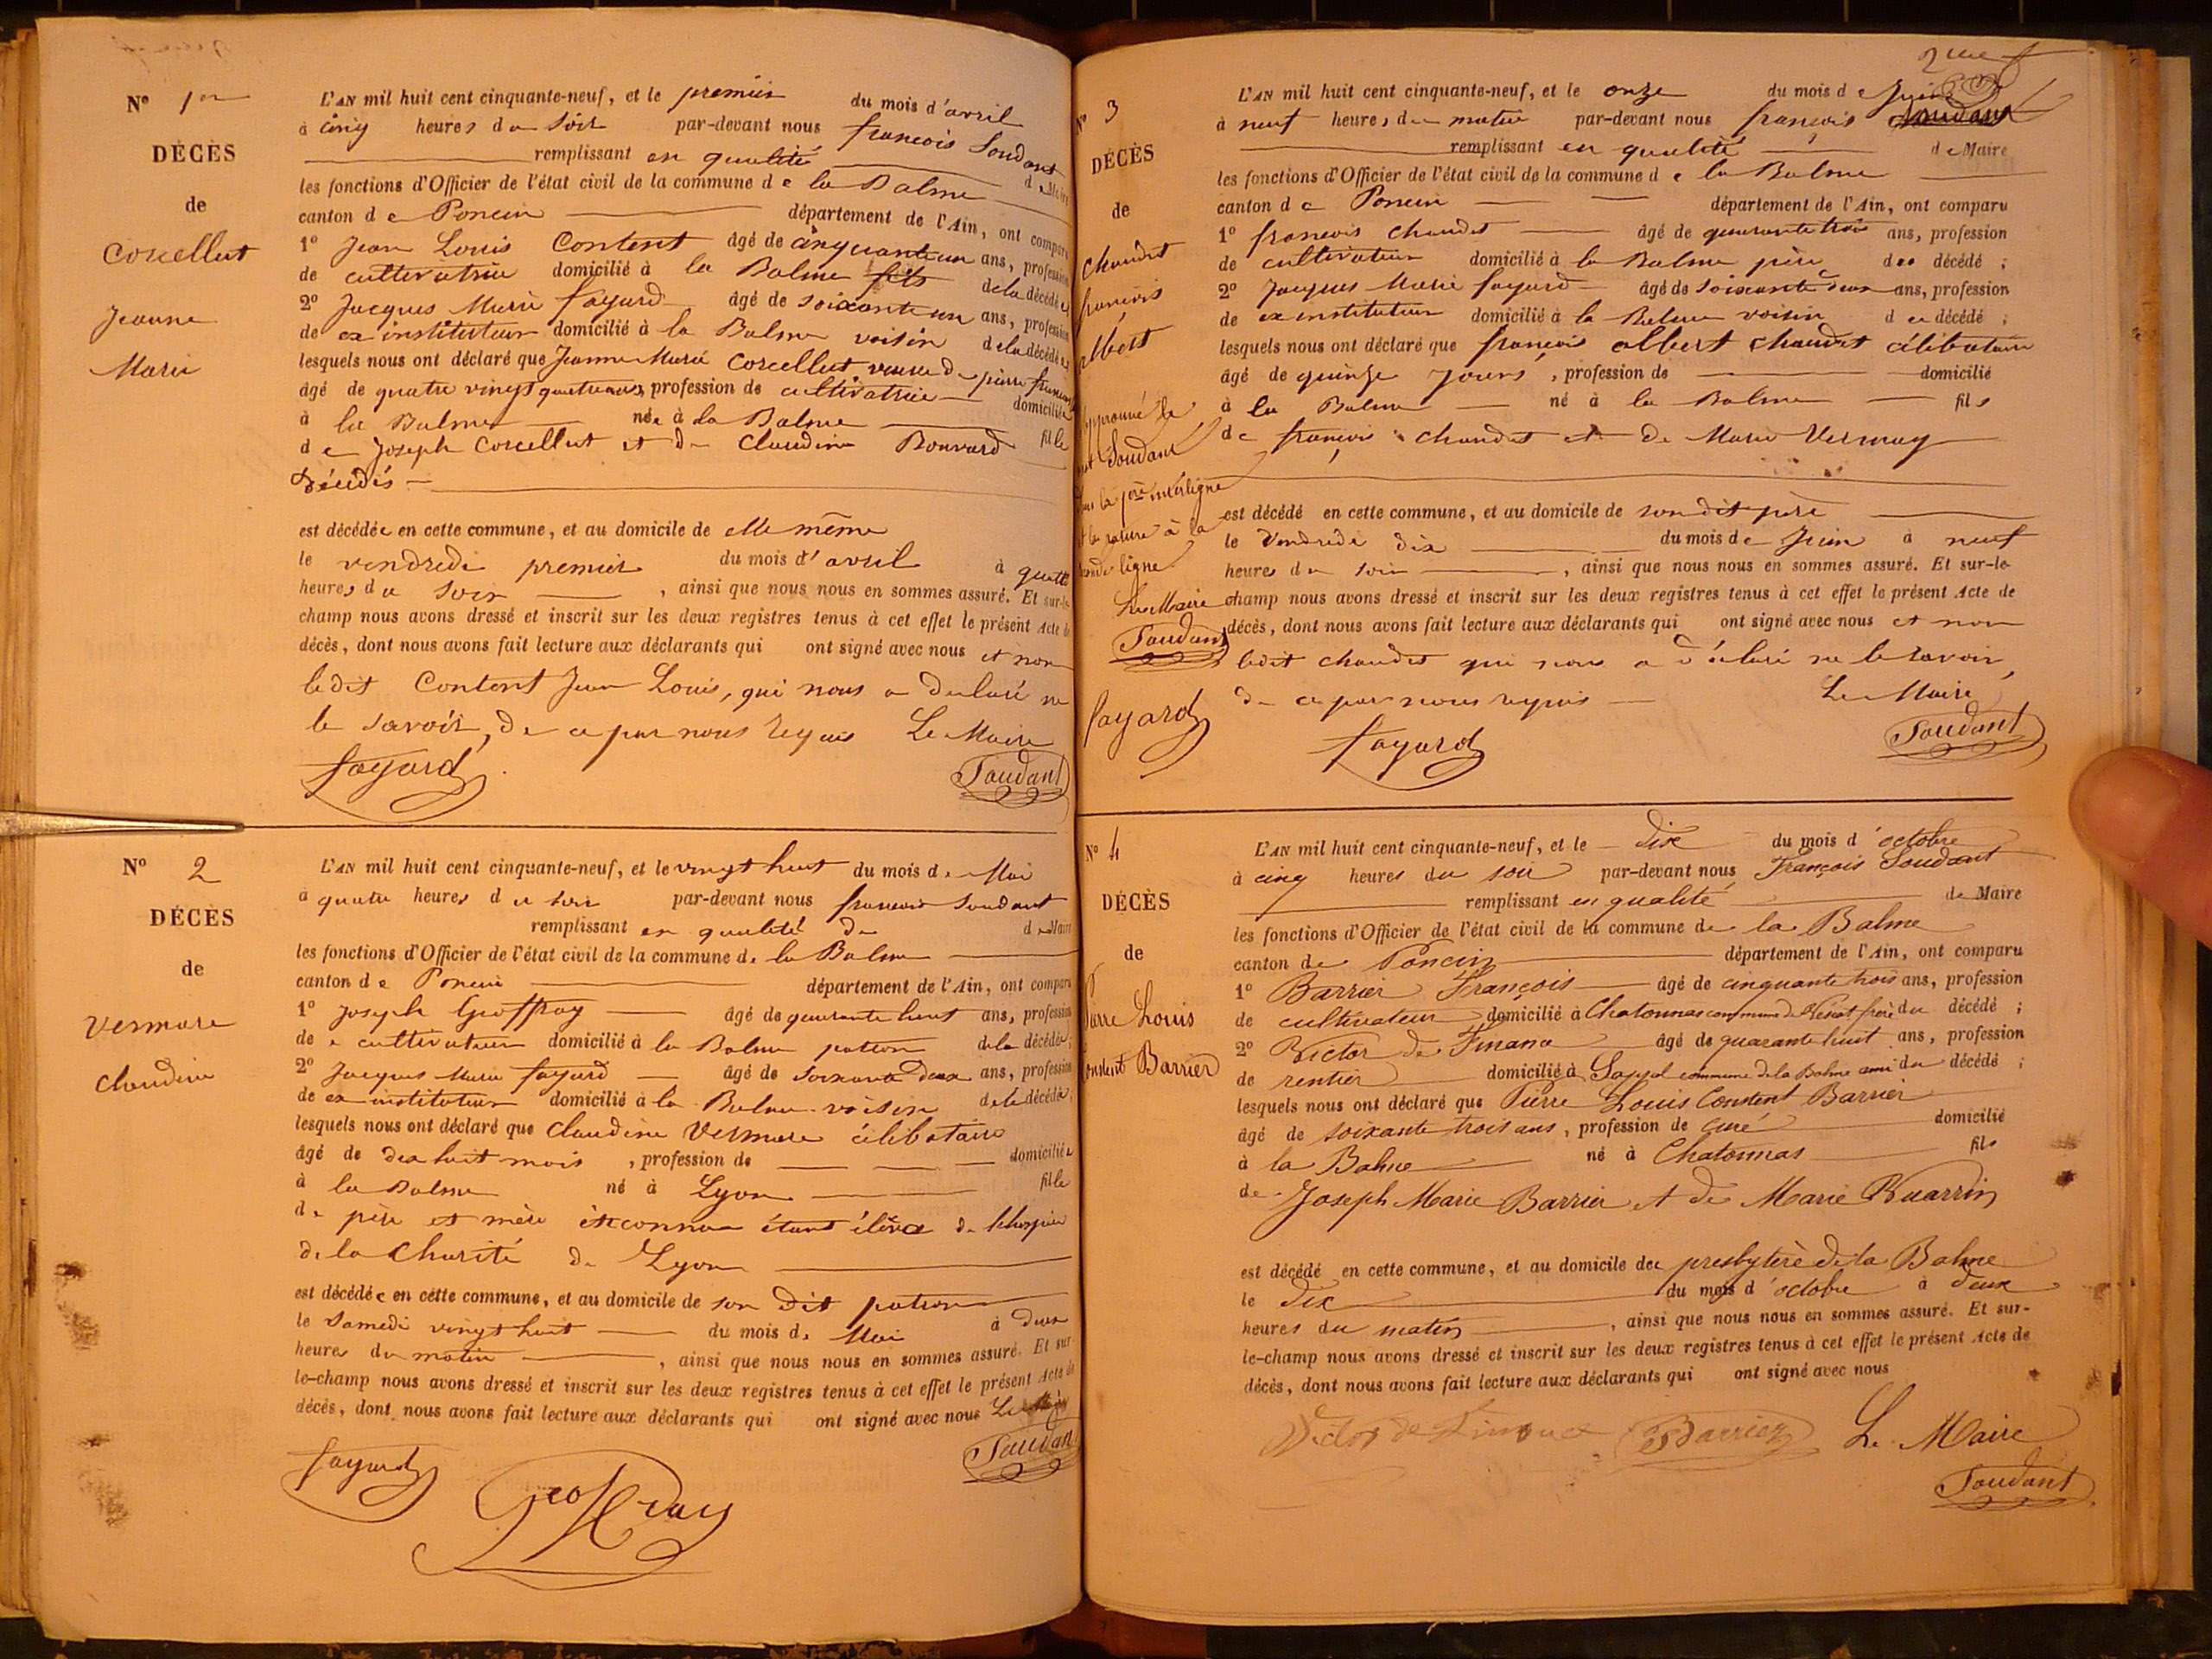 N° 1er
DÉCÈS
de
Corcellut
Jeanne
Marie
L'AN mil huit cent cinquante-neuf, et le premier du mois d'avril
à cinq heures du soir par-devant nous françois Soudant
remplissant en qualité de Maire
les fonctions d'Officier de l'état civil de la commune de la Balme
canton de Poncin département de l'Ain, ont comparu
1° Jean Louis Content âgé de cinquante un ans, profession
de cultivatrice domicilié à la Balme fils de la décédée
2° Jacques Marie fayard âgé de soixante un ans, profession
de ex instituteur domicilié à la Balme voisin de la décédée
lesquels nous ont déclaré que Jeanne Marie Corcellut veuve de pierre
âgé de quatre vingt quatre ans, profession de cultivatrice domiciliée
à la Balme née à la Balme
de Joseph Corcellut et de Claudine Bonvard fille
Décédés
est décédée en cette commune, et au domicile de elle même
le vendredi premier du mois d'avril à quatre
heures du soir , ainsi que nous nous en sommes assuré. Et sur-le-
champ nous avons dressé et inscrit sur les deux registres tenus à cet effet le présent Acte de
décès, dont nous avons fait lecture aux déclarants qui ont signé avec nous et non
ledit Content Jean Louis, qui nous a declaré ne
le savoir, de ce par nous requis Le Maire
fayard Soudant
N° 2
DÉCÈS
de
Vermare
Claudine
L'AN mil huit cent cinquante-neuf, et le vingt huit du mois de Mai
à quatre heures du soir par-devant nous francois Soudant
remplissant en qualité de de Maire
les fonctions d'Officier de l'état civil de la commune de la Balme
canton de Poncin département de l'Ain, ont comparu
1° Joseph Geoffray âgé de quarante huit ans, profession
de cultivateur domicilié à la Balme patron de la décédée;
2° Jacques Marie fayard âgé de soixante deux ans, profession
de ex instituteur domicilié à la Balme voisin de la décédée;
lesquels nous ont déclaré que Claudine Vermare célibataire
âgé de dix huit mois , profession de domiciliée
à la Balme né à Lyon fille
de père et mère inconnue étant élève de l'hospice
de la Charité de Lyon
est décédée en cette commune, et au domicile de son dit patron
le Samedi vingt huit du mois de Mai à deux
heures du matin , ainsi que nous nous en sommes assuré. Et sur-
le-champ nous avons dressé et inscrit sur les deux registres tenus à cet effet le présent Acte de
décès, dont nous avons fait lecture aux déclarants qui ont signé avec nous Le Maire
fayard Soudant
Geoffray
N° 3
DÉCÈS
de
Chaudet
françois
albert
approuvé le
mot Soudant
la 1ère interligne
et la rature à la
ligne.
Le Maire
Soudant
fayard
L'AN mil huit cent cinquante-neuf, et le onze du mois de Juin
à neuf heures du matin par-devant nous françois Soudant
remplissant en qualité de Maire
les fonctions d'Officier de l'état civil de la commune de la Balme
canton de Poncin département de l'Ain, ont comparu
1° françois Chaudet âgé de quarante trois ans, profession
de cultivateur domicilié à la Balme père du décédé ;
2° Jacques Marie fayard âgé de soixante deux ans, profession
de ex instituteur domicilié à la Balme voisin du décédé ;
lesquels nous ont déclaré que françois albert Chaudet célibataire
âgé de quinze jours , profession de domicilié
à la Balme né à la Balme fils
de françois Chaudet et de Marie Vermay
est décédé en cette commune, et au domicile de son dit père
le Vendredi dix du mois de Juin à neuf
heures du soir , ainsi que nous nous en sommes assuré. Et sur-le-
champ nous avons dressé et inscrit sur les deux registres tenus à cet effet le présent Acte de
décès, dont nous avons fait lecture aux déclarants qui ont signé avec nous et non
ledit Chaudet qui nous a déclaré ne le savoir,
de ce par nous requis Le Maire
fayard Soudant
N° 4
DÉCÈS
de
Pierre Louis
Constent Barrier
L'AN mil huit cent cinquante-neuf, et le Dix du mois d'octobre
à cinq heures du soir par-devant nous François Soudant
remplissant en qualité de Maire
les fonctions d'Officier de l'état civil de la commune de la Balme
canton de Poncin département de l'Ain, ont comparu
1° Barrier François âgé de cinquante trois ans, profession
de cultivateur domicilié à Chatonnas commune de frère du décédé ;
2° Victor de Finance âgé de quarante huit ans, profession
de rentier domicilié à Sappel commune de la Balme ami du décédé ;
lesquels nous ont déclaré que Pierre Louis Constent Barrier
âgé de soixante trois ans , profession de curé domicilié
à la Balme né à Chatonnas fils
de Joseph Marie Barrier et de Marie Ruarrin
est décédé en cette commune, et au domicile du presbytère de la Balme
le Dix du mois d'octobre à deux
heures du matin , ainsi que nous nous en sommes assuré. Et sur-
le-champ nous avons dressé et inscrit sur les deux registres tenus à cet effet le présent Acte de
décès, dont nous avons fait lecture aux déclarants qui ont signé avec nous
Victor de Finance Barrier Le Maire
Soudant